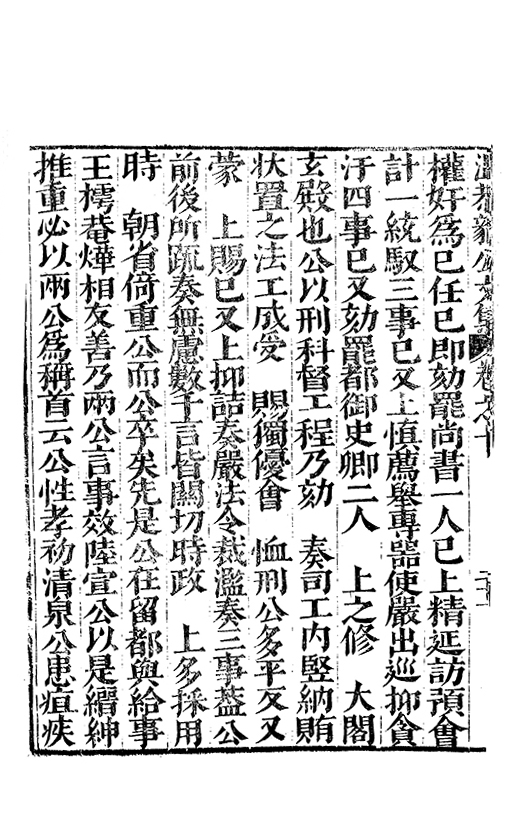 溫恭毅公文集 卷之十
權奸爲己任已即劾罷尚書一人已上精延訪預會
計一統馭三事已又上慎薦舉專器使嚴出巡抑貪
汙四事已又劾罷都御史卿二人 上之修 大閣
玄殿也公以刑科督工程乃劾 奏司工内竪納賄
狀置之法工成受 賜獨優會 恤刑公多平反又
蒙 上賜已又上抑詰奏嚴法令裁濫奏三事葢公
前後所疏奏無慮數千言皆關切時政 上多採用
時 朝省倚重公而公卒矣先是公在留都與給事
王樗菴燁相友善乃兩公言事效陸宣公以是縉紳
推重必以兩公爲稱首云公性孝初清泉公患疽疾